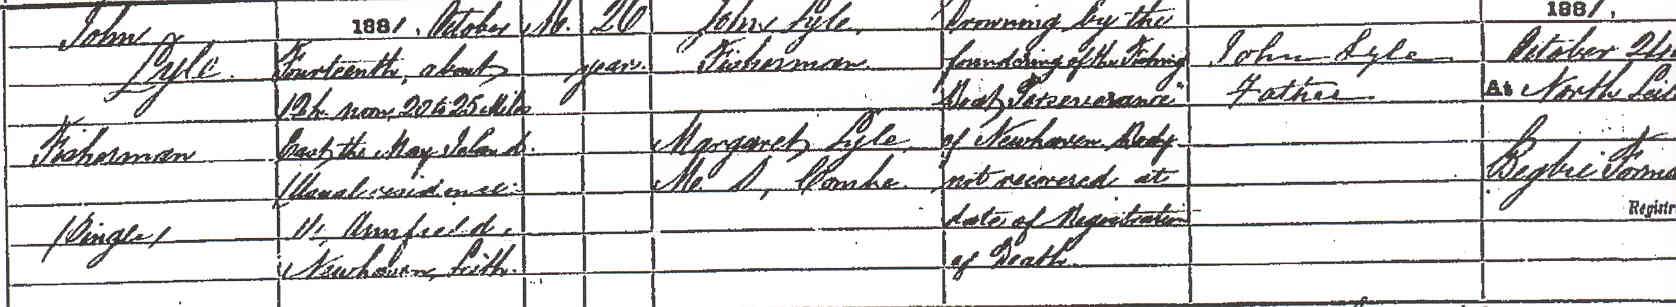 John
Lyle
Fisherman
(Single)
1881, October
Fourteenth, about
12h. noon, 20 to 25 Miles
East the May Island.
(Usual residence
Annfield,
Newhaven, Leith.
M.
26
years.
John Lyle,
Fisherman
Margaret Lyle
M. S. Combe
Drowning by the
foundering of the Fishing
Boat "Perseverance"
of Newhaven. Body
not recovered at
date of Registration
of Death.
John Lyle
Father
1881,
October 24
At North Leith
Begbie
Registr